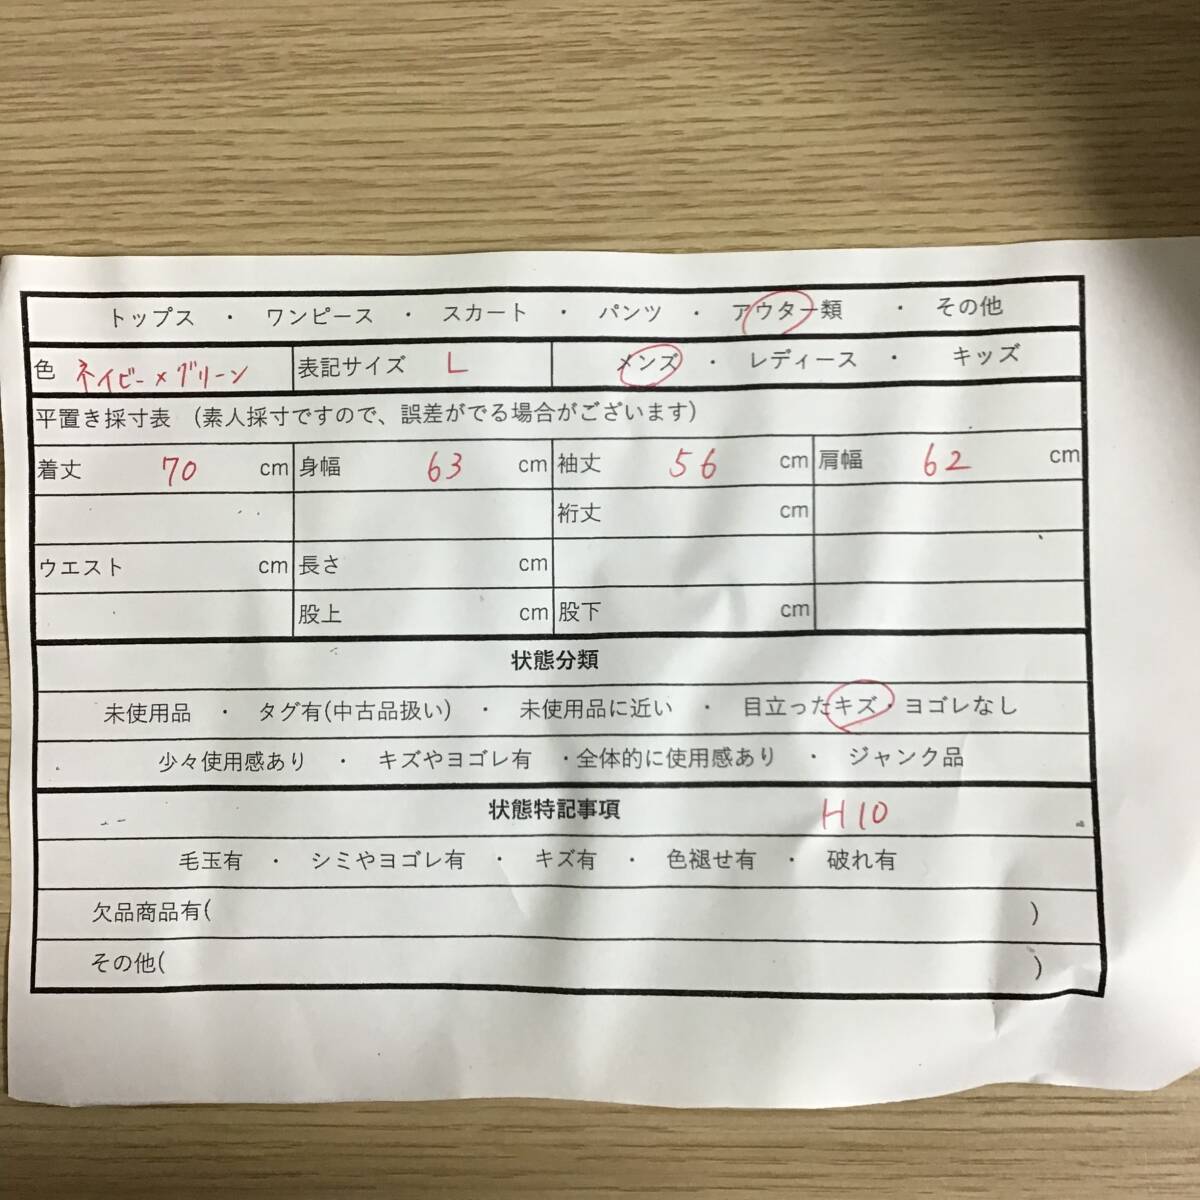 トップス ・ ワンピース ・ スカート ・ パンツ ・ アウター類 ・ その他
色 ネイビー×グリーン 表記サイズ L メンズ ・ レディース ・ キッズ
平置き採寸表 (素人採寸ですので、誤差がでる場合がございます)
着丈 70 cm 身幅 63 cm 袖丈 56 cm 肩幅 62 cm
裄丈 cm
ウエスト cm 長さ cm
股上 cm 股下 cm
状態分類
未使用品 ・ タグ有(中古品扱い) ・ 未使用品に近い ・ 目立ったキズ・ヨゴレなし
少々使用感あり ・ キズやヨゴレ有 ・全体的に使用感あり ・ ジャンク品
状態特記事項 H10
毛玉有 ・ シミやヨゴレ有 ・ キズ有 ・ 色褪せ有 ・ 破れ有
欠品商品有( )
その他( )